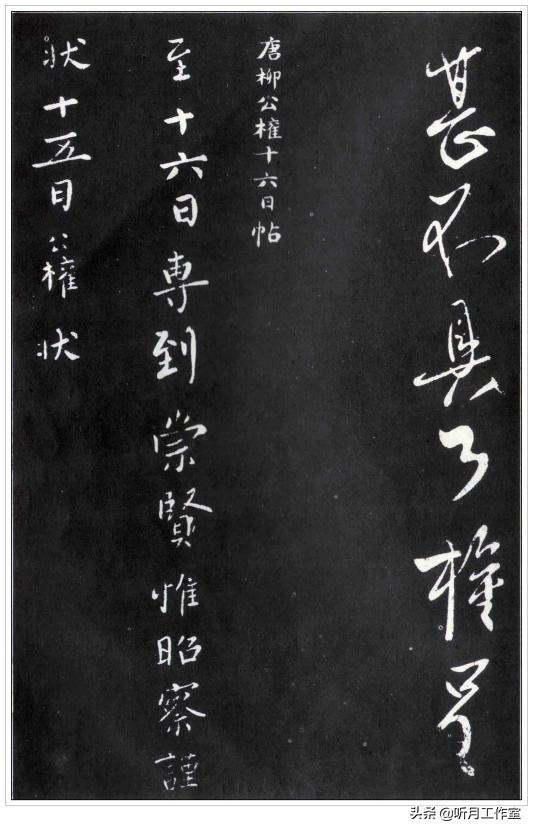 甚不具了權呈
唐柳公權十六日帖
至十六日專到崇賢惟昭察謹
狀十五日公權狀
头条 @听月工作室